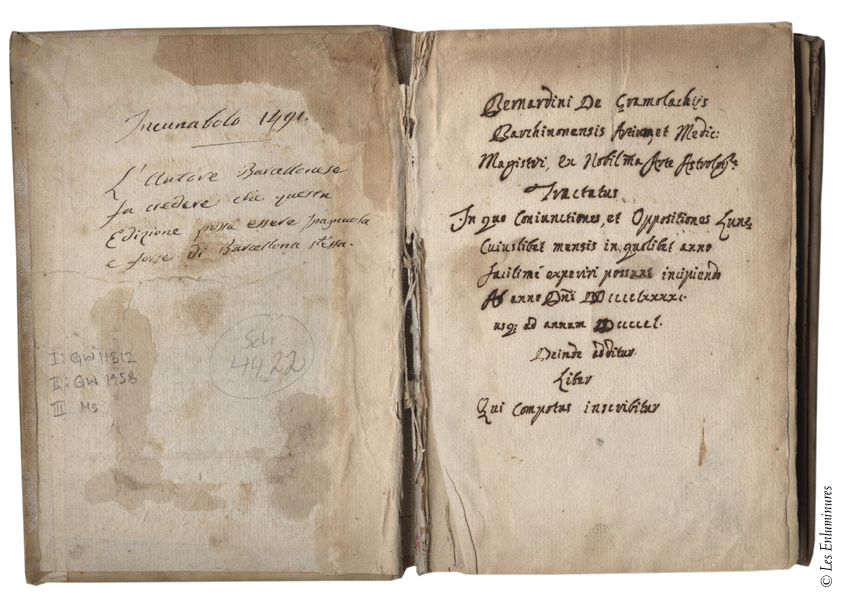 Incunabolo 1491.
L'Autore Barcellonese
fa credere che questa
Edizione possa essere spagnuola
e forse di Barcellona stessa.
Sch
4422
I: GW 11812
II: GW 1958
III Ms
Bernardini De Gramolachijs
Barchinonensis et Medic:
Magistri, ex Nobilma Arte Astrologe.
Tractatus
In quo Coniunctiones, et Oppositiones Lune
Cuiuslibet mensis in quolibet anno
facilimé experiri possunt incipiendo
Ab anno Dni MCCCClxxxxi.
usq; ad annum MDCCCCl.
Deinde additur
Liber
Qui Compotus inscribitur
© Les Enluminures